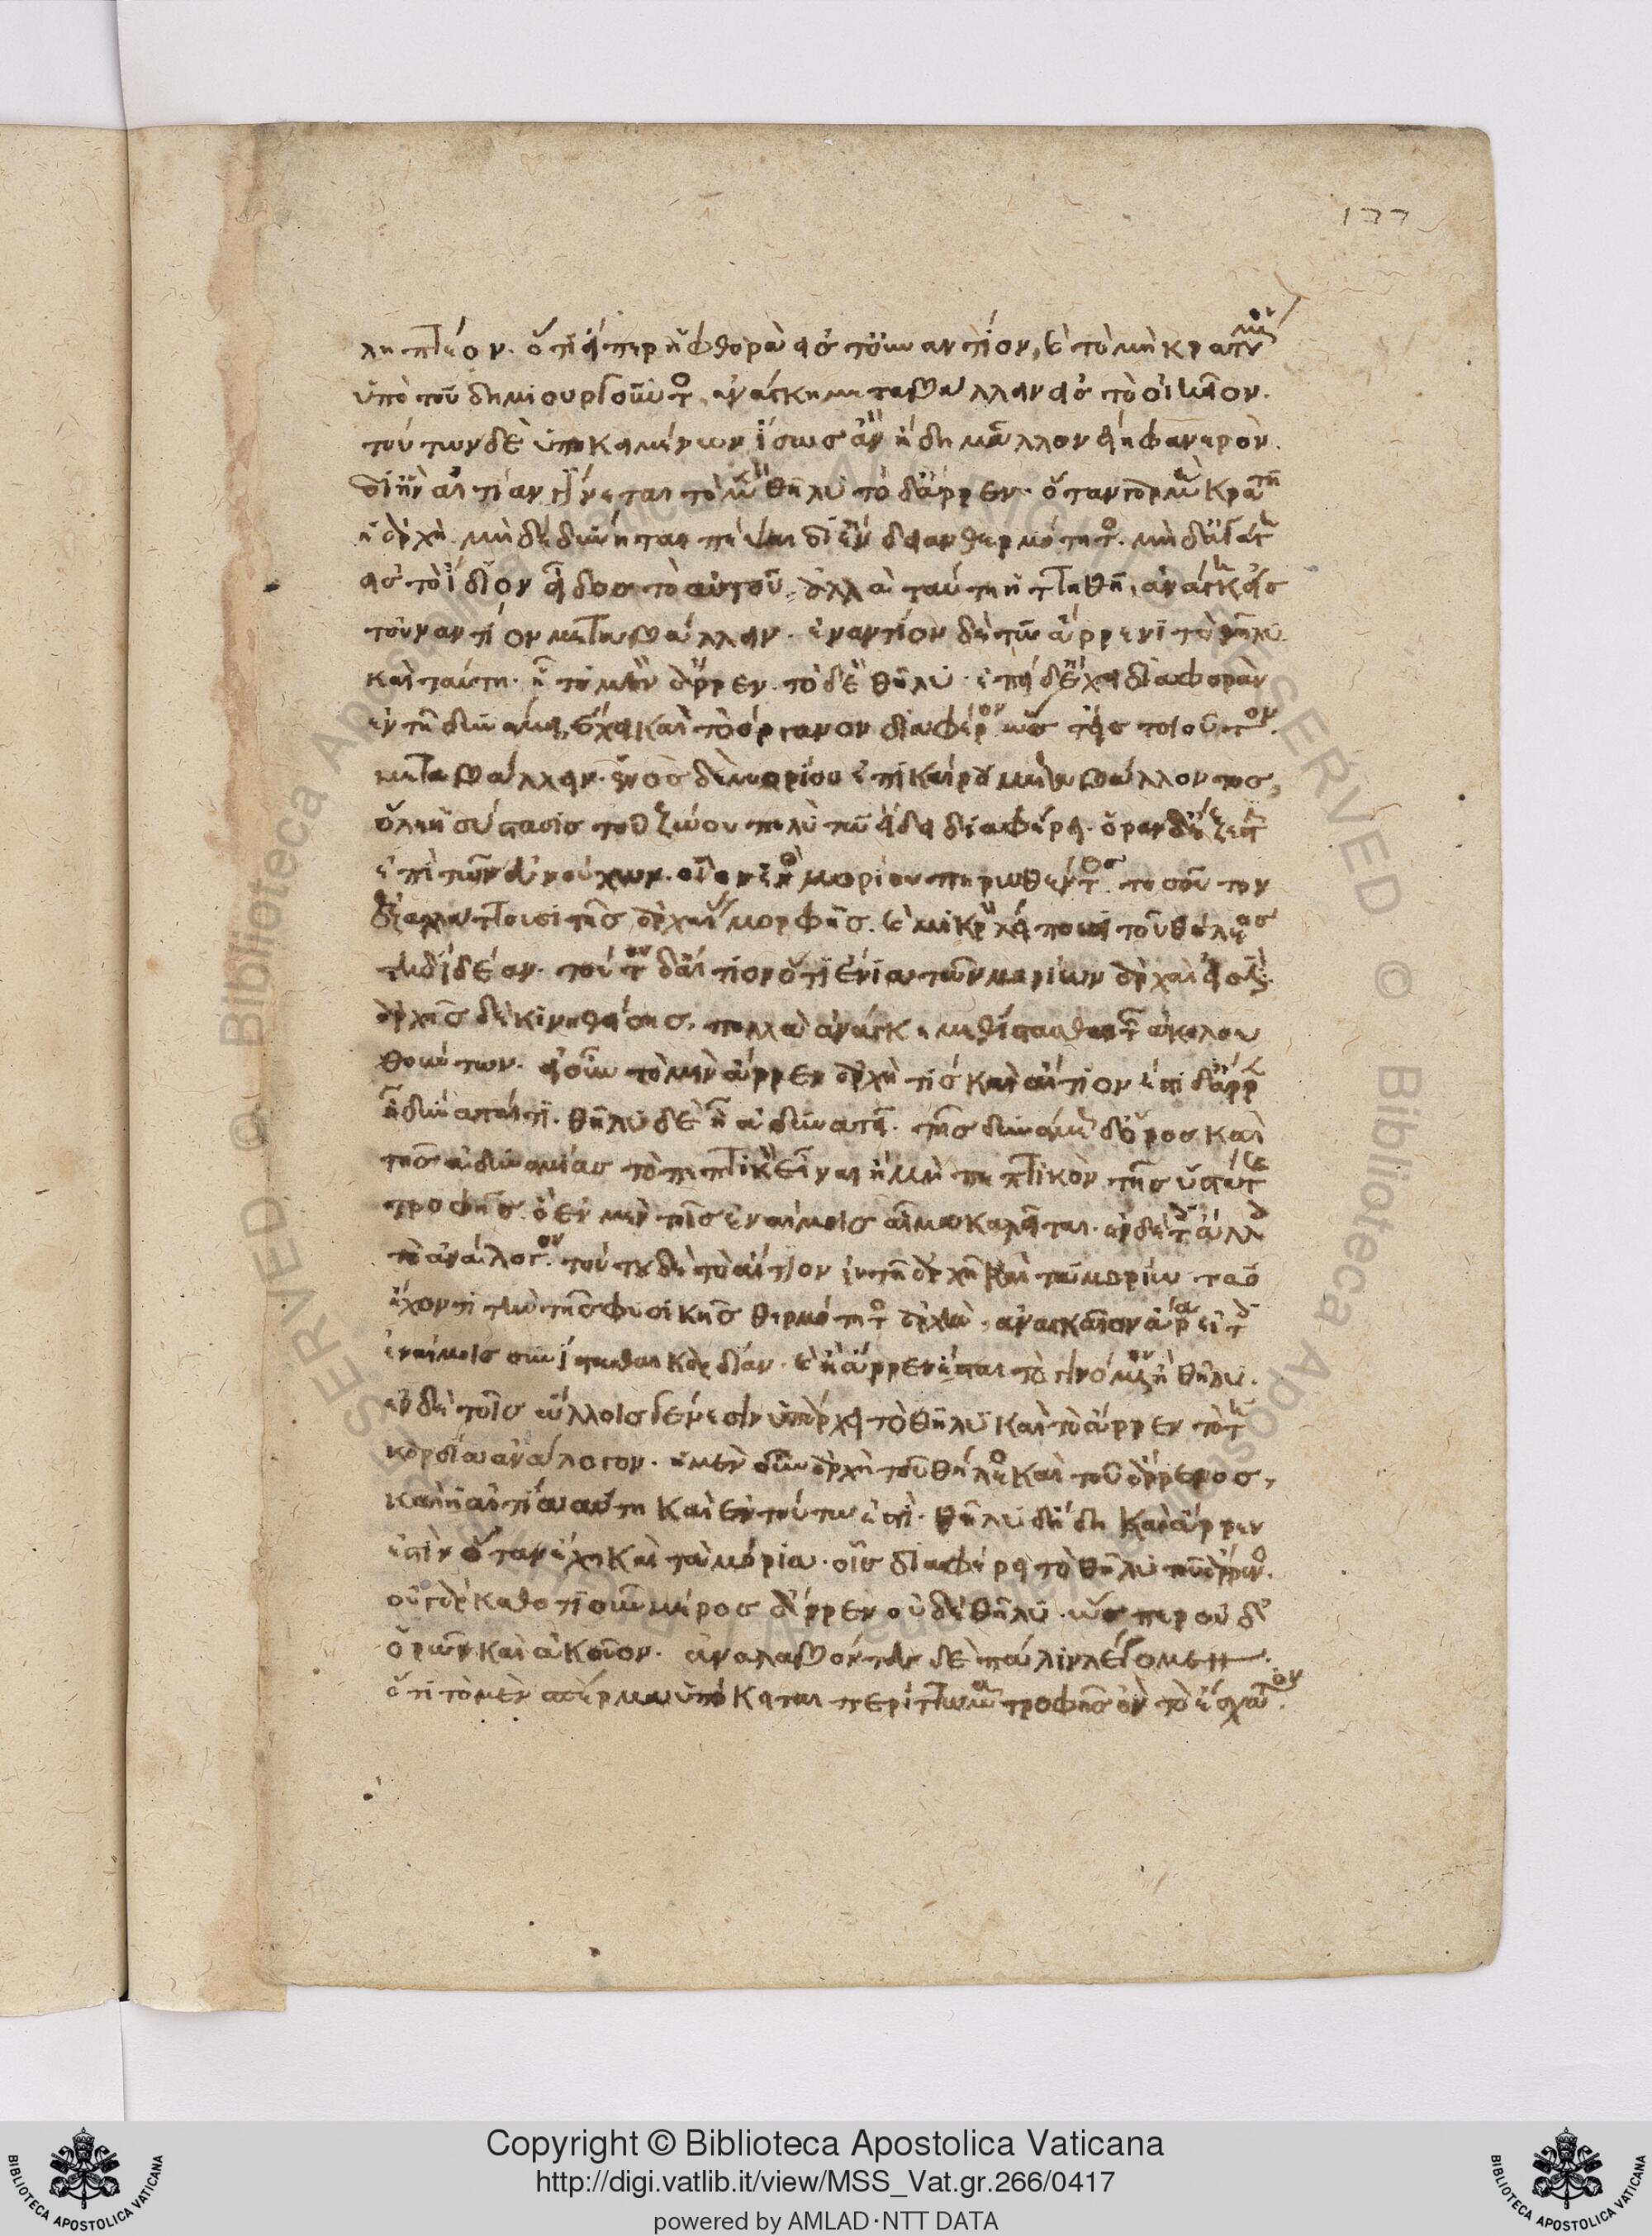 177
ληπτέον. ὅτι εἴπερ ἡ φθορὰ εἰς τοὐναντίον, καὶ τὸ μὴ κρατούμενον
ὑπὸ τοῦ δημιουργοῦντος, ἀνάγκη μεταβάλλειν εἰς τὸ οἰκεῖον.
τούτων δὲ ὑποκειμένων ἴσως ἂν ἤδη μᾶλλον εἴη φανερὸν.
δι' ἣν αἰτίαν γίνεται τὸ μὲν θῆλυ τὸ δ' ἄρρεν. ὅταν γὰρ μὴ κρατῆ
ἡ ἀρχὴ μηδὲ δύνηται πέψαι δι' ἔνδειαν θερμότητος. μηδ' ἀγάγη
εἰς τὸ ἴδιον εἶδος τὸ αὑτοῦ, ἀλλὰ ταύτη ἡττηθῆ, ἀνάγκη εἰς
τοὐναντίον μεταβάλλειν. ἐναντίον δὲ τῶ ἄρρενι τὸ θῆλυ
καὶ ταύτη. ἧ τὸ μὲν ἄρρεν. τὸ δὲ θῆλυ. ἐπεὶ δ' ἔχει διαφορὰν
ἐν τῆ δυνάμει, ἔχει καὶ τὸ ὄργανον διαφέρον ὥστ' εἰς τοιοῦτον
μεταβάλλειν. ἑνὸς δὲ μορίου ἐπικαίρου μεταβάλλοντος,
ὅλη ἡ σύστασις τοῦ ζώου πολὺ τῶ εἴδει διαφέρει. ὁρᾶν δ' ἔξεστιν
ἐπὶ τῶν εὐνούχων. οἳ ἑνὸς μορίου πηρωθέντος τοσοῦτον
ἐξαλλάττουσι τῆς ἀρχαίας μορφῆς. καὶ μικρὸν ἐλλείπουσι τοῦ θήλεος
τὴν ἰδέαν. τούτου δ' αἴτιον ὅτι ἔνια τῶν μορίων ἀρχαὶ εἰσίν.
ἀρχῆς δὲ κινηθείσης, πολλὰ ἀνάγκη μεθίστασθαι τῶν ἀκολου
θούντων. εἰ οὖν τὸ μὲν ἄρρεν ἀρχή τις καὶ αἴτιον. ἔστι δ' ἄρρεν
ἧ δύναταί τι. θῆλυ δὲ ἧ ἀδυνατεῖ. τῆς δυνάμεως δ' ὅρος καὶ
τῆς ἀδυναμίας τὸ πεπτικὸν εἶναι ἢ μὴ πεπτικὸν τῆς ὑστάτης
τροφῆς. ὃ ἐν μὲν τοῖς ἐναίμοις αἷμα καλεῖται. ἐν δὲ τοῖς ἄλλοις
τὸ ἀνάλογον. τούτου δὲ τὸ αἴτιον ἐν τῆ ἀρχῆ καὶ τῶ μορίω τῶ
ἔχοντι τὴν τῆς φυσικῆς θερμότητος ἀρχὴν, ἀναγκαῖον ἄρα ἐν τοῖς
ἐναίμοις συνίστασθαι καρδίαν. καὶ ἢ ἄρρεν ἔσται τὸ γινόμενον ἢ θῆλυ.
ἐν δὲ τοῖς ἄλλοις γένεσιν ὑπάρχει τὸ θῆλυ καὶ τὸ ἄρρεν τὸ τῆ
καρδία ἀνάλογον. ἡ μὲν οὖν ἀρχὴ τοῦ θήλεος καὶ τοῦ ἄρρενος,
καὶ ἡ αἰτία αὕτη καὶ ἐν τούτω ἐστὶ. θῆλυ δ' ἤδη καὶ ἄρρεν
ἐστὶν ὅταν ἔχη καὶ τὰ μόρια. οἷς διαφέρει τὸ θῆλυ τοῦ ἄρρενος.
οὐ γὰρ καθ' ὁτιοῦν μέρος ἄρρεν οὐδὲ θῆλυ. ὥσπερ οὐδ'
ὁρῶν καὶ ἀκοῦον. ἀναλαβόντες δὲ πάλιν λέγομεν.
ὅτι τὸ μὲν σπέρμα ὑπόκειται περίττωμα τροφῆς ὂν τὸ ἔσχατον.